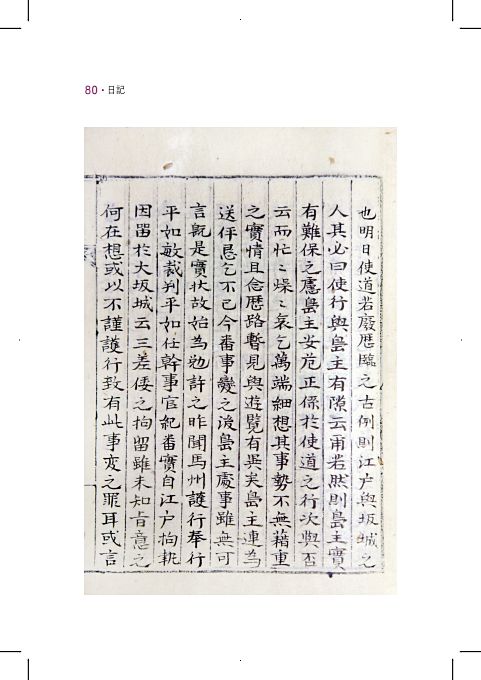 80 · 日記
也明日使道若廢歷臨之古例則江户與坂城之
人其必曰使行與島主有隙云甫若然則島主實
有難保之慮島主安危正係於使道之行次與否
云而忙〻燥〻哀乞萬端細想其事勢不無藉重
之實情且念歷路暫見與遊覽有異矣島主連為
送伻懇乞不已今番事變之後島主處事雖無可
言旣是實狀故始為勉許之昨聞馬州護行奉行
平如敏裁判平如任幹事官紀番實自江户拘執
因留於大坂城云三差倭之拘留雖未知旨意之
何在想或以不謹護行致有此事变之罪耳或言